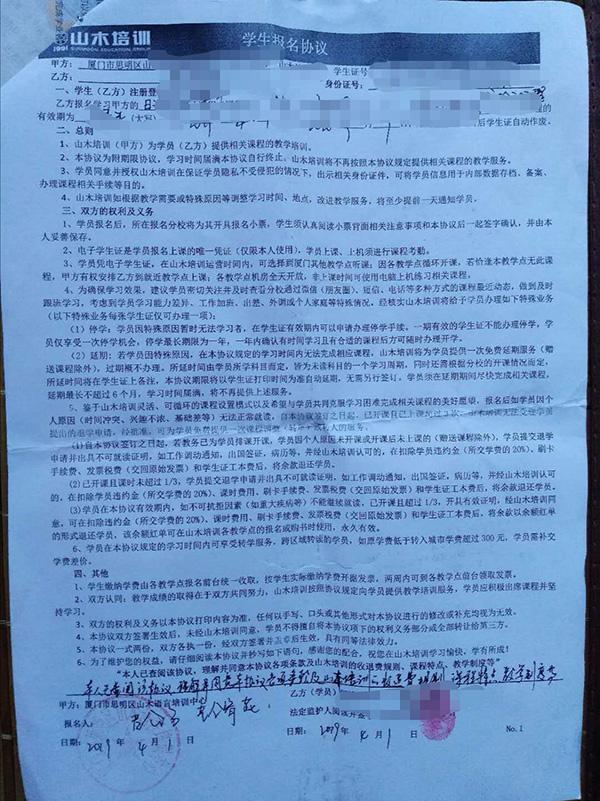 山木培训
1991 SUNMOON EDUCATION GROUP
学生报名协议
甲方：厦门市思明区山
学生证号
乙方：
身份证号：
一、学生（乙方）注册登
乙方报名学习甲方的
程的
有效期为
后学生证自动作废。
二、总则
1、山木培训（甲方）为学员（乙方）提供相关课程的教学培训。
2、本协议为附期限协议，学习时间届满本协议自行终止。山木培训将不再按照本协议规定提供相关课程的教学服务。
3、学员同意并授权山木培训在保证学员隐私不受侵犯的情况下，出示相关身份证件，可将学员信息用于内部数据存档、备案、
办理课程相关手续等目的。
4、山木培训如根据教学需要或特殊原因等调整学习时间、地点，改进教学服务，将至少提前一天通知学员。
三、双方的权利及义务
1、学员报名后，所在报名分校将为其开具报名小票，学生须认真阅读小票背面相关注意事项和本协议后一起签字确认，并由本
人妥善保存。
2、电子学生证是学员报名上课的唯一凭证（仅限本人使用），学员上课、上机须进行课程考勤。
3、学员凭电子学生证，在山木培训运营时间内，可选择到厦门其他教学点听课；因各教学点循环开课，若恰逢本教学点无此课
程，甲方有权安排乙方到就近教学点上课；各教学点机房全天开放，非上课时间可使用电脑上机练习相关课程。
4、为确保学习效果，建议学员密切关注并及时查看分校通过微信（朋友圈）、短信、电话等多种方式的课程最近动态，做到及时
跟班学习，考虑到学员学习能力差异、工作加班、出差、外训或个人家庭等特殊情况，经核实山木培训将给予学员办理如下特殊业务
（以下特殊业务每张学生证仅可办理一项）：
（1）停学：学员因特殊原因暂时无法学习者，在学生证有效期内可以申请办理停学手续，一期有效的学生证不能办理停学，学
员仅享受一次停学机会，停学最长期限为一年，一年内确认有时间学习且有合适的课程后方可随时办理开学。
（2）延期：若学员因特殊原因，在本协议规定的学习时间内无法完成相应课程，山木培训将为学员提供一次免费延期服务（赠
送课程除外），过期概不办理。所延时间由学员所学科目而定，皆为未读科目的一个学习周期，同时还需根据分校的开课情况而定，
所延时间将在学生证上备注，本协议期限将以学生证打印时间为准自动延期，无需另行签订，学员须在延期期间尽快完成相关课程，
延期最长不超过 6 个月，学习时间届满，将不再提供上述服务。
5、鉴于山木培训灵活、可循环的课程设置模式以及希望与学员共同克服学习困难完成相关课程的美好愿望，报名后如学员因个
人原因（时间冲突、兴趣不浓、基础差等）无法正常就读，自本协议签订之日起，已开课且已上课超过 3 次，山木培训无法受理学员
提出的退学申请，经批准，可为学员免费提供一次课程调整（转班）或转人的服务。
（1）自本协议签订之日起，若教务已为学员排课开课，学员因个人原因未开课或开课后未上课的（赠送课程除外），学员提交退学
申请并出具不可就读证明，如工作调动通知，出国签证，病历等，并经山木培训认可的，在扣除学员违约金（所交学费的 20%）、刷卡
手续费、发票税费（交回原始发票）和学生证工本费后，将余款退还学员。
（2）已开课且课时未超过 1/3，学员提交退学申请并出具不可就读证明，如工作调动通知，出国签证，病历等，并经山木培训认可
的，在扣除学员违约金（所交学费的 20%）、课时费用、刷卡手续费、发票税费（交回原始发票）和学生证工本费后，将余款退还学员。
（3）学员在本协议有效期内，如不可抗拒因素（如重大疾病等）不能继续就读，已开课且超过 1/3，开具有效证明，经山木培训同
意，可在扣除违约金（所交学费的 20%）、课时费用、刷卡手续费、发票税费（交回原始发票）和学生证工本费后，将余款以余额红单
的形式退还学员，该余额红单可在山木培训各教学点的报名或购书时使用，永久有效。
6、学员在本协议规定的学习时间内可享受转学服务，跨区域转读的学员，如原学费低于转入城市学费超过 300 元，学员需补交
学费差价。
四、其他
1、学生缴纳学费由各教学点报名前台统一收取，按学生实际缴纳学费开据发票，两周内可到各教学点前台领取发票。
2、双方认同：教学成绩的取得在于双方共同努力，山木培训按照协议规定向学员提供教学培训服务，学员应积极出席课程并坚
持学习。
3、双方的权利及义务以本协议打印内容为准，任何以手写、口头或其他形式对本协议进行的修改或补充均视为无效。
4、本协议双方签署生效后，未经山木培训同意，学员不得擅自将本协议项下的权利义务部分或全部转让给第三方。
5、本协议一式两份，双方各执一份，经双方签署并盖章后生效，具有同等法律效力。
6、为了维护您的权益，请仔细阅读本协议并抄写如下语句，感谢您的配合，祝您在山木培训学习愉快，学有所成！
“本人已查阅该协议，理解并同意本协议各项条款及山木培训的收退费规则、课程特点、教学制度等”
甲方：厦门市思明区山木语言培训中心
乙方（学员）
报名人：
法定监护人阅读并签
日期：2019 年 4 月 1 日
日期：2019 年 4 月 1 日
No.1